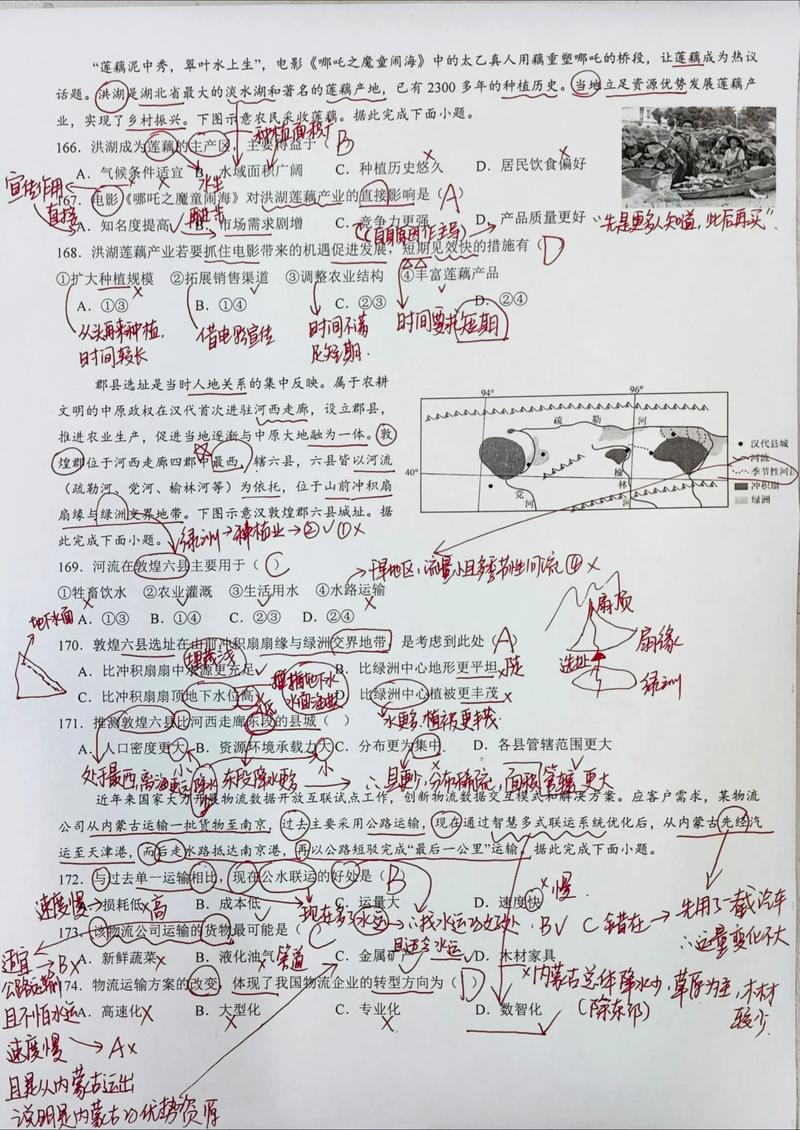 “莲藕泥中秀，翠叶水上生”，电影《哪吒之魔童闹海》中的太乙真人用藕重塑哪吒的桥段，让莲藕成为热议
话题。洪湖是湖北省最大的淡水湖和著名的莲藕产地，已有 2300 多年的种植历史。当地立足资源优势发展莲藕产
业，实现了乡村振兴。下图示意农民采收莲藕。据此完成下面小题。
种植面积广
166．洪湖成为莲藕的主产区，主要得益于（B
A．气候条件适宜 B．水域面积广阔 C．种植历史悠久 D．居民饮食偏好
宣传作用
水生
167．电影《哪吒之魔童闹海》对洪湖莲藕产业的直接影响是（A）
直接
再进步
A．知名度提高 B．市场需求剧增 C．竞争力更强 D．产品质量更好
“先是更多人知道，此后再买”
168．洪湖莲藕产业若要抓住电影带来的机遇促进发展，短期见效快的措施有（D）
①扩大种植规模 ②拓展销售渠道 ③调整农业结构 ④丰富莲藕产品
A．①③ B．①④ C．②③ D．②④
从头再来种植，
时间较长
借电影宣传
时间不满
足短期．
时间要求短期
郡县选址是当时人地关系的集中反映。属于农耕
文明的中原政权在汉代首次进驻河西走廊，设立郡县，
推进农业生产，促进当地逐渐与中原大地融为一体。敦
煌郡位于河西走廊四郡中最西，辖六县，六县皆以河流
（疏勒河、党河、榆林河等）为依托，位于山前冲积扇
扇缘与绿洲交界地带。下图示意汉敦煌郡六县城址。据
此完成下面小题。
绿洲→种植业→②√①×
94° 96°
40°
疏 勒 河
党 河
榆 林 河
汉代县城
河流
季节性河流
冲积扇
绿洲
169．河流在敦煌六县主要用于（C）
干旱地区，流量小且多季节性河流 ④×
①牲畜饮水 ②农业灌溉 ③生活用水 ④水路运输
A．①③ B．①④ C．②③ D．②④
地下水面
扇顶
扇缘
选址
绿洲
170．敦煌六县选址在山前冲积扇扇缘与绿洲交界地带，是考虑到此处（A）
埋藏浅
A．比冲积扇扇中水源更充足 B．比绿洲中心地形更平坦 陡
C．比冲积扇扇顶地下水位高 D．比绿洲中心植被更丰茂
低
水更多，植被更丰茂
171．推测敦煌六县比河西走廊东段的县城（ ）
A．人口密度更大 B．资源环境承载力大 C．分布更为集中 D．各县管辖范围更大
小 小
处于最西，离海更远，降水少 东段降水更多 ∴县更少，分布稀疏，面积管辖更大
近年来国家大力开展物流数据开放互联试点工作，创新物流数据交互模式和解决方案。应客户需求，某物流
公司从内蒙古运输一批货物至南京，过去主要采用公路运输，现在通过智慧多式联运系统优化后，从内蒙古先经汽
运至天津港，而后走水路抵达南京港，再以公路短驳完成“最后一公里”运输。据此完成下面小题。
172．与过去单一运输相比，现在公水联运的好处是（B
A．损耗低 B．成本低 C．运量大 D．速度快
速度慢
高
慢
现在多了水运 ∴找水运的好处，B√ C错在→先用了一截汽车
∴运量变化不大
173．该物流公司运输的货物最可能是（C
A．新鲜蔬菜 B．液化油气 C．金属矿产 D．木材家具
管道
适宜→B×
公路运输
且不怕水运
×内蒙古总体降水少，草原为主，木材
（除东部）
较少．
174．物流运输方案的改变，体现了我国物流企业的转型方向为（D）
A．高速化 B．大型化 C．专业化 D．数智化
速度慢→A×
且是从内蒙古运出
说明是内蒙古的优势资源